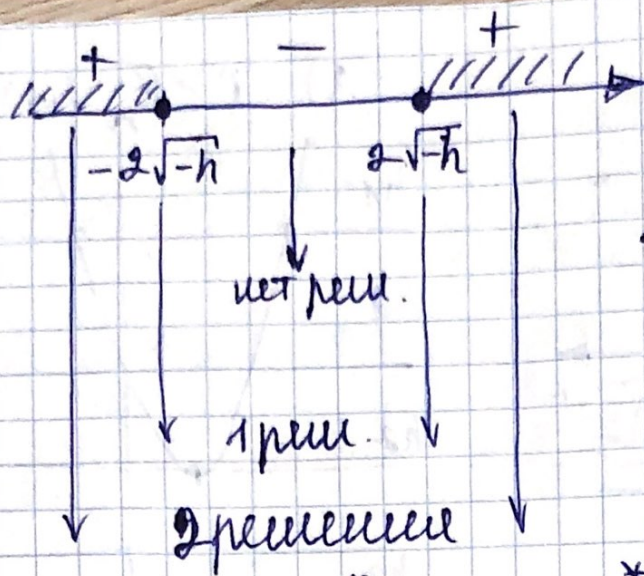 + − +
−2√−h 2√−h
нет реш.
1 реш.
2 решения